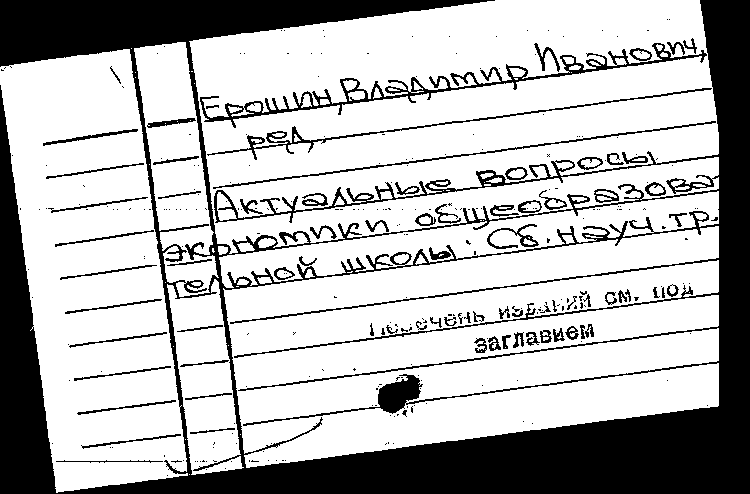 Ерошин, Владимир Иванович,
ред.
Актуальные вопросы
экономики общеобразова-
тельной школы: Сб. науч. тр.
Перечень изданий см. под
заглавием